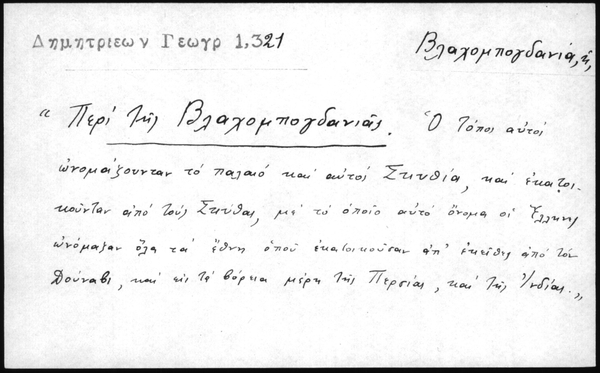 Δημητριεων Γεωγρ 1,321
Βλαχομπογδανία, ἡ,
“Περί τῆς Βλαχομπογδανιᾶς. Ὁ τόποι αὐτοί
ὠνομάζουνταν τὸ παλαιό καί αὐτοί Σκυθία, καί ἐκατοι-
κοῦνταν ἀπό τούς Σκύθαι, μέ τό ὁποῖο αὐτό ὄνομα οἱ Ἕλληνες
ὠνόμαζαν ὅλα τά ἔθνη ὁποῦ ἐκατοικοῦσαν ἀπ’ ἐκεῖθες ἀπό τόν
Δούναβι, καί εἰς τά βόρεια μέρη τῆς Περσίας, καί τῆς Ἰνδίας.„